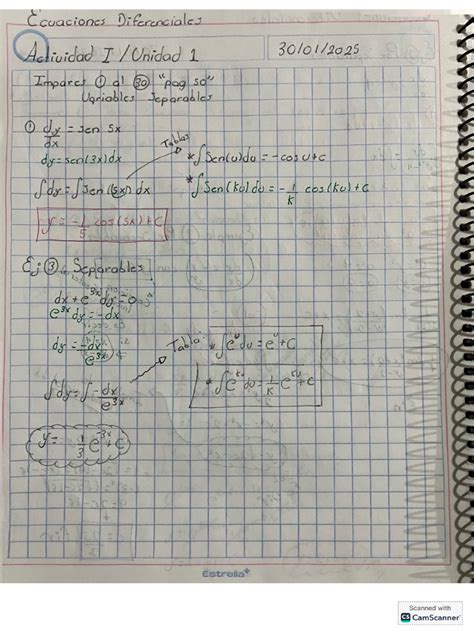 Ecuaciones Diferenciales
Actividad I / Unidad 1
30/01/2025
Impares ① al ㉚ "pag 50"
Variables Separables
① dy/dx = sen 5x
dy = sen(3x)dx
Tablas
* ∫Sen(u)du = -cos u+c
∫dy = ∫sen(5x)dx
* ∫Sen(ku)du = -1/k cos(ku)+c
y = -1/5 cos(5x)+C
Ej ③ Separables
dx + e^3x dy = 0
e^3x dy = -dx
dy = -dx/e^3x
Tabla:
* ∫e^u du = e^u + C
∫dy = ∫-dx/e^3x
* ∫e^ku du = 1/k e^ku + C
y = 1/3 e^-3x + C
Estrella
Scanned with
CS CamScanner